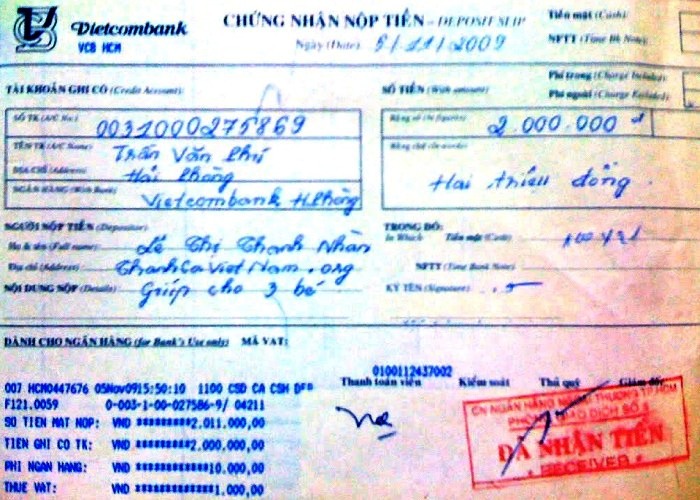 Vietcombank
VCB HCM
CHỨNG NHẬN NỘP TIỀN - DEPOSIT SLIP
Ngày (Date) 5/11/2009
Tiền mặt (Cash)
NFTT (Time Bk Note)
Phí trong (Charge Included)
Phí ngoài (Charge Excluded)
TÀI KHOẢN GHI CÓ (Credit Account)
SỐ TIỀN (With amount)
SỐ TK (A/C No.) 0031000275869
Bằng số (In figures) 2.000.000 đ
TÊN TK (A/C Name) Trần Văn Phú
Bằng chữ (In words)
ĐỊA CHỈ (Address) Hải Phòng
NGÂN HÀNG (With Bank) Vietcombank H.Phòng
Hai triệu đồng.
NGƯỜI NỘP TIỀN (Depositor)
TRONG ĐÓ:
Họ & tên (Full name) Lê Thị Thanh Nhàn
In Which Tiền mặt (Cash)
Địa chỉ (Address) ThanhCaVietNam.org
NFTT (Time Bank Note)
NỘI DUNG NỘP (Details) Giúp cho 3 bé
KÝ TÊN (Signature)
DÀNH CHO NGÂN HÀNG (for Bank's Use only) MÃ VAT:
0100112437002
Thanh toán viên Kiểm soát Thủ quỹ Giám đốc
007 HCM0447676 05Nov0915:50:10 1100 CSD CA CSH DEP
F121.0059 0-003-1-00-027586-9/ 04211
SO TIEN MAT NOP: VND *********2.011.000,00
TIEN GHI CO TK: VND *********2.000.000,00
PHI NGAN HANG: VND ***********10.000,00
THUE VAT: VND ************1.000,00
CN NGÂN HÀNG NGOẠI THƯƠNG TP.HCM
PHÒNG GIAO DỊCH SỐ
ĐÃ NHẬN TIỀN
RECEIVER